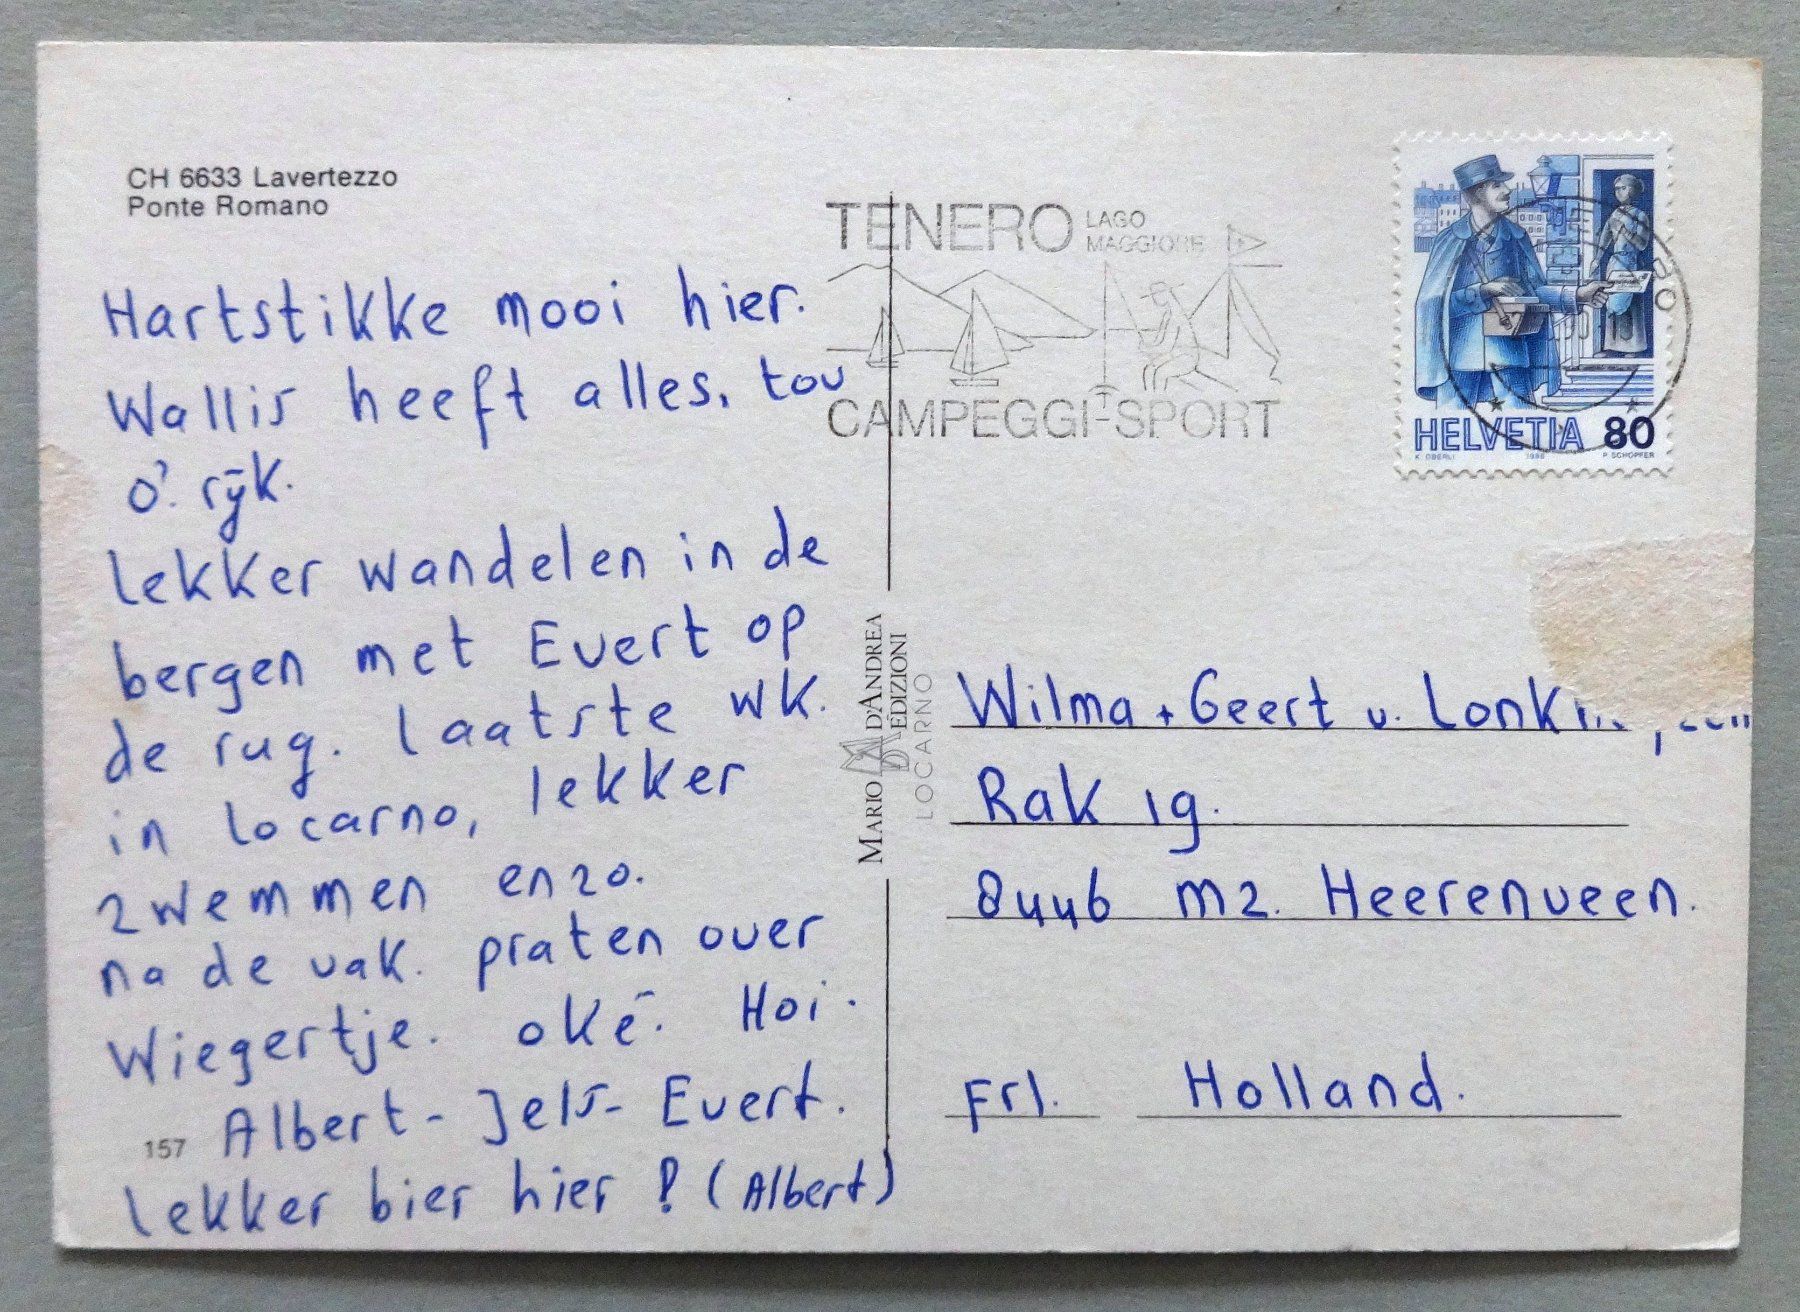 CH 6633 Lavertezzo
Ponte Romano
Hartstikke mooi hier.
Wallis heeft alles, tou
o'. rijk.
lekker wandelen in de
bergen met Evert op
de rug. laatste wk.
in locarno, lekker
zwemmen enzo.
na de vak. praten over
Wiegertje. oké. Hoi.
Albert - Jels - Evert.
157
lekker bier hier ! (Albert)
TENERO LAGO
MAGGIORE
CAMPEGGI-SPORT
HELVETIA 80
K. OBERLI 1986 P. SCHOPFER
MARIO D'ANDREA
EDIZIONI
LOCARNO
Wilma + Geert v.
Rak 19.
8446 MZ. Heerenveen.
Frl. Holland.